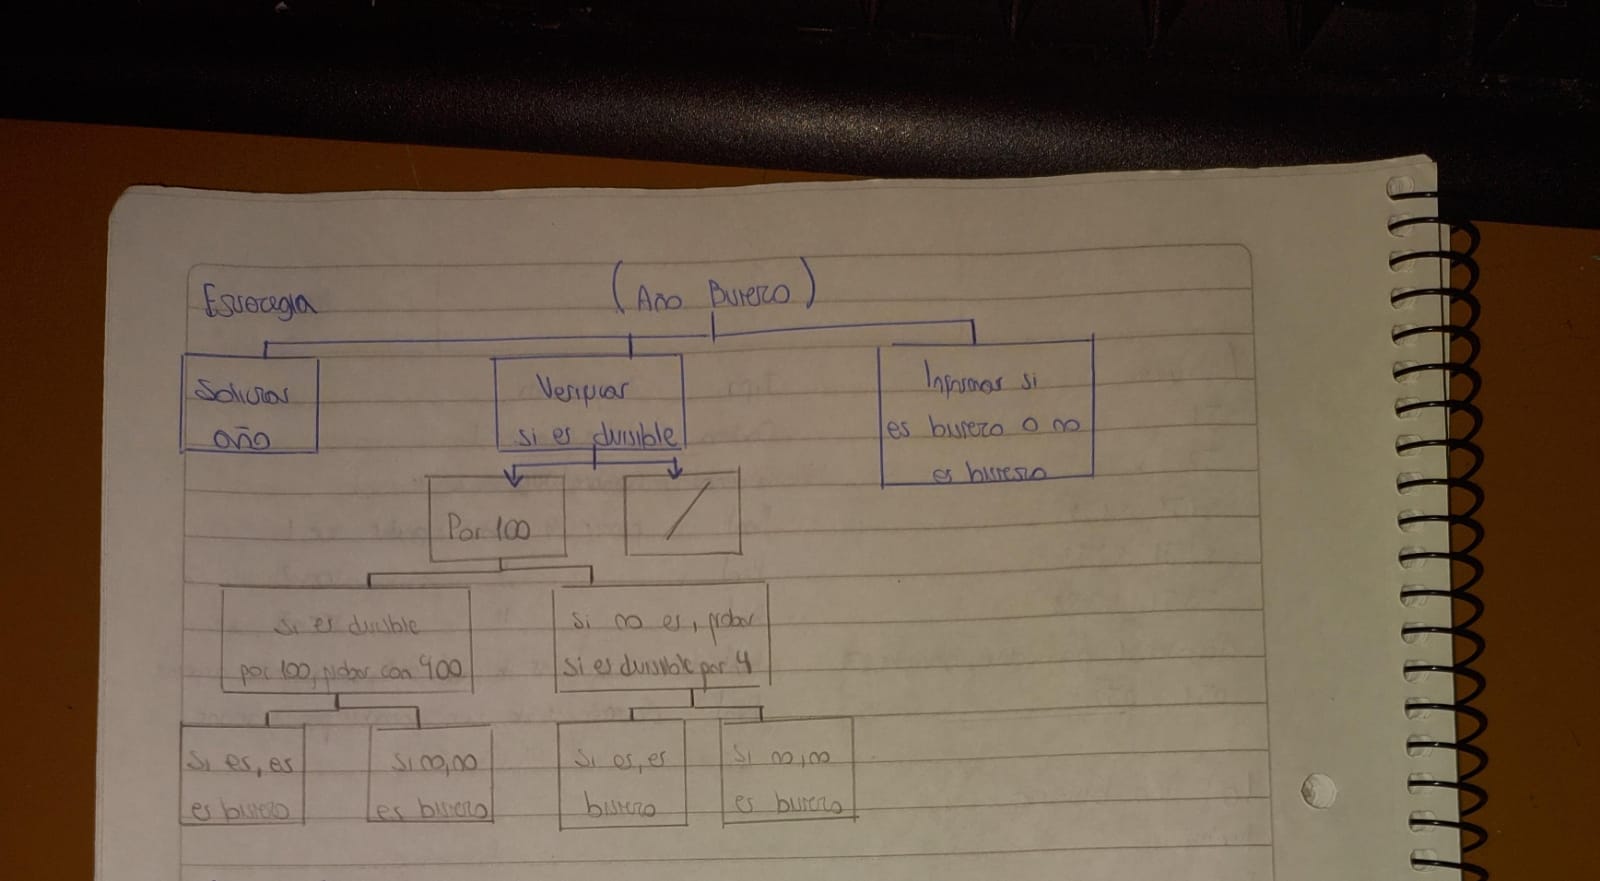 Estrategia
(Año Bisiesto)
Solicitar
año
Verificar
si es divisible
Informar si
es bisiesto o no
es bisiesto
Por 100
/
Si es divisible
por 100, probar con 400
Si no es, probar
si es divisible por 4
Si es, es
es bisiesto
Si no, no
es bisiesto
Si es, es
bisiesto
Si no, no
es bisiesto